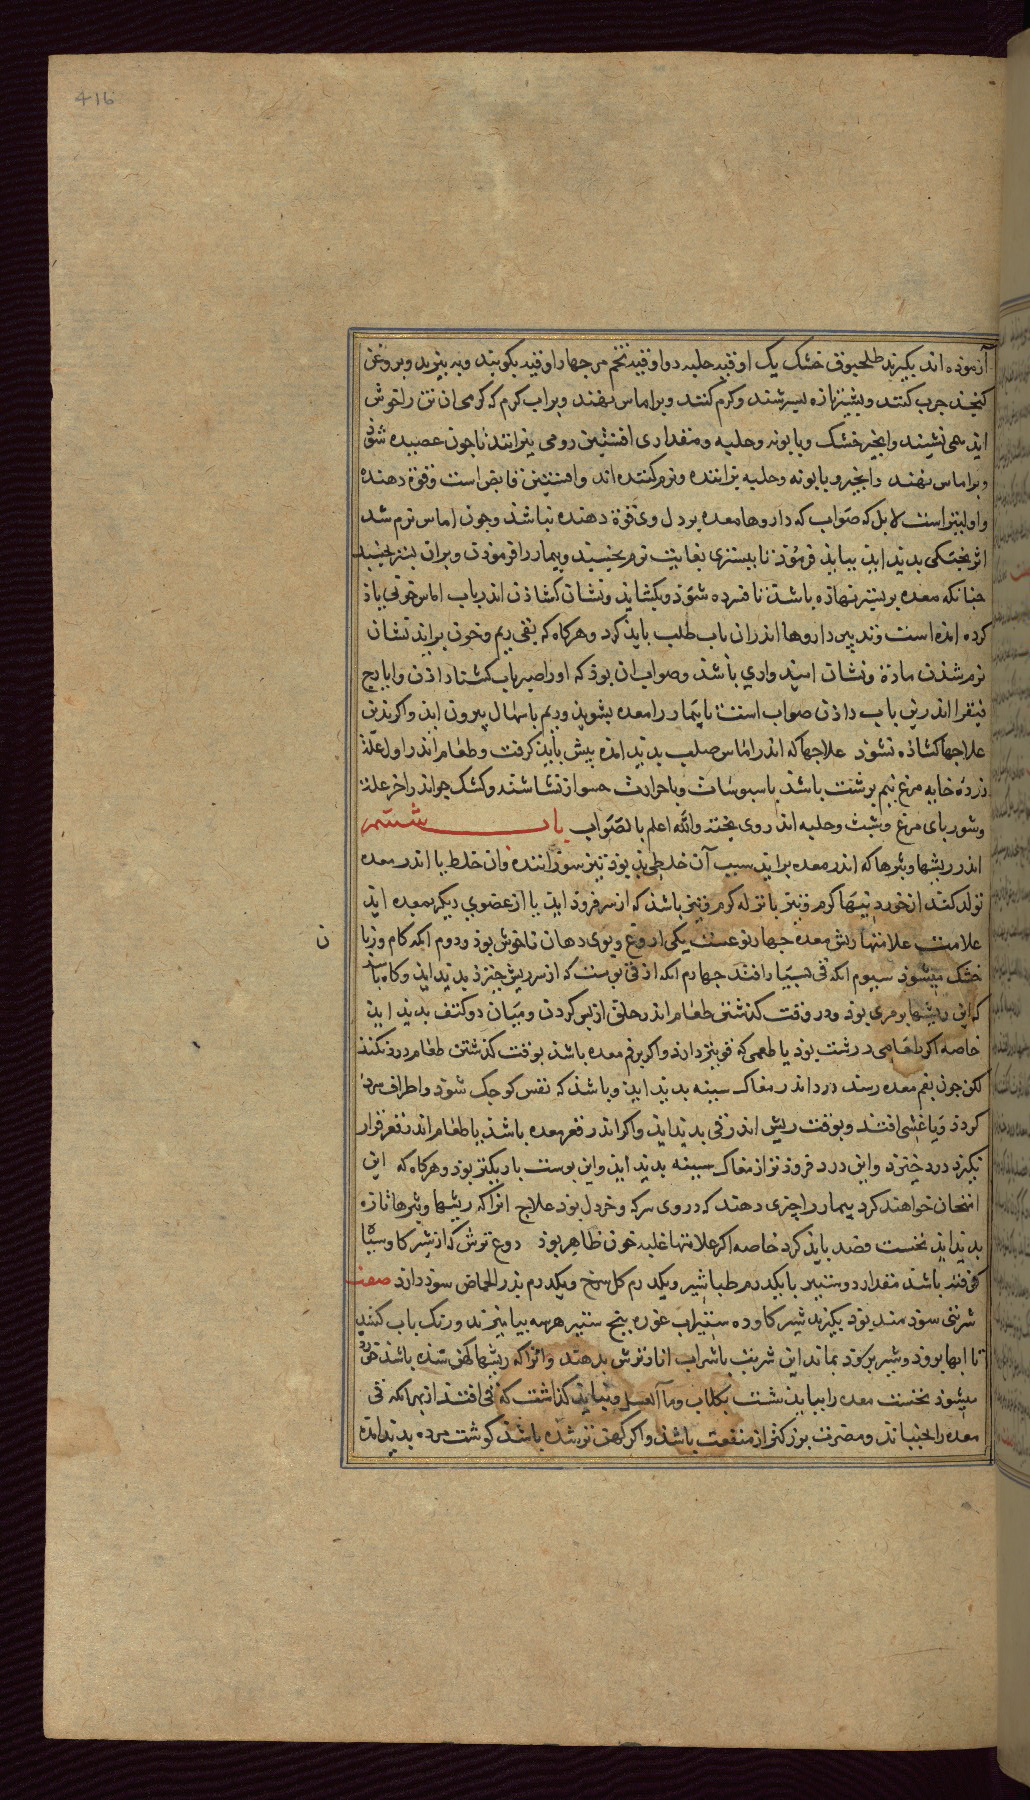 416
آزموده اند بکیرند طلحبوق خشک یک اوقیه حلبه دو اوقیه تخم مر جهار اوقیه بکوبند وبه بیزند وبروغن
کنجد جرب کنند وبشیر تازه بسرشند وکرم کنند وبراماس نهند وبراب کرم که کرمی ان تن را خوش
اید همی نشیند وانجیر خشک وبابونه وحلبه ومقداری افسنتین رومی بزانند تا جون عصیده شود
وبراماس نهند وانجیر وبابونه وحلبه بزاننده ونرم کننده اند وافسنتین قابض است وقوة دهنده
واولیتر است لابل که صواب که داروها معده بر دل وی قوة دهنده نباشد وجون اماس نرم شد
اثر بختکی بدید اید بباید فرمود تا بستری بغایت نرم بخسبد وبیمار را فرمودن وبران بستر بخسبد
جنانکه معده بر بستر نهاده باشد تا فسرده شود وبکشاید ونشان کشاذن اندر باب اماس خونی یاذ
کرده امده است وتدبیر داروها اندران باب طلب باید کرد وهرکاه که بقی ریم وخون براید نشان
نرم شدن مادة ونشان امیدواری باشد وصواب ان بود که اورا صبر باب کشنا داذن وایارج
فیقرا اندرین باب داذن صواب است تا بیمار را معده بشوید وریم باسهال بیرون اید واکر بدین
علاجها کشاذه نشود علاجها که اندر اماس صلب بدید امده بیش باید کرفت وطعام اندر اول علة
زرده خایه مرغ نیم برشت باشد با سبوسات وباحرارت حسو از نشاشته وکشک جو اندر اخر علة
وشوربای مرغ وشبت وحلبه اندر وی بخته والله اعلم بالصواب باب ششم
اندر ریشها وبثرها که اندر معده براید سبب آن خلطی بذ بود تیز سوزاننده وان خلط یا اندر معده
تولد کند از خوردنیها کرم وتیز یا نزله کرم وتیز باشد که از سر فروذ اید یا از عضوی دیکر بمعده اید
علامت علامتها ریش معده جهار نوعست یکی اروغ وبوی دهان ناخوش بود ودوم انکه کام وزبا
ن
خشک میشود سیوم انکه قی بسیار افتد جهارم انکه از قی بوست که از سر ریش خیزد بدید اید وکاه باشد
که این ریشها بر مری بود ودر وقت کذشتن طعام اندر حلق از بس کردن ومیان دو کتف بدید اید
خاصه اکر طعامی درشت بود یا طعمی که قوی تیز دارد واکر بر فم معده باشد بوقت کذشتن طعام درد نکند
لکن جون بفم معده رسد درد اندر مغاک سینه بدید اید وباشد که نفس کوجک شود واطراف سرد
کردد ویا غشی افتد وبوقت ریش اندر قی بدید اید واکر اندر قعر معده باشد یا طعام اندر قعر قرار
نکیرد درد خیزد واین درد فروذ تر از مغاک سینه بدید اید واین بوست باریکتر بود وهرکاه که این
امتحان خواهند کرد بیمار را جیزی دهند که در وی سرکه وخردل بود علاج انرا که ریشها وبثرها تازه
بدید اید نخست فصد باید کرد خاصه اکر علامتها غلبه خون ظاهر بود دوغ ترش که از شیر کاو سیاه
کرفته باشد مقدار دو ستیر با یکدرم طباشیر ویکدرم کل سرخ ویکدرم بزر الحماض سوذ دارد صفت
شربتی سود مند بود بکیرند شیر کاو ده ستیر اب غوره بنج ستیر هر سه بیامیزند ودیک باب کنند
تا ابها برود وشیر بر کرد بماند این شربت با شراب انار ترش بدهند وانرا که ریشها کهن شده باشد خورد
میشود نخست معده را بباید شست بکلاب وما العسل ونباید کذاشت که قی افتد از بهر انکه قی
معده را بجنباند ومضرت بزرکتر از منفعت باشد واکر کهن تر شده باشد کوشت مرده بدید امده